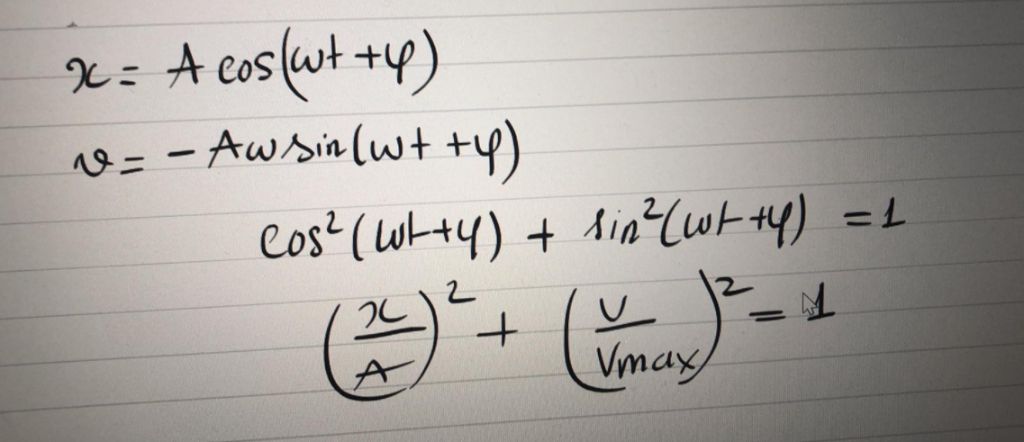 x = A cos(ωt + φ)
v = - Aω sin(ωt + φ)
cos²(ωt + φ) + sin²(ωt + φ) = 1
(x/A)² + (v/Vmax)² = 1